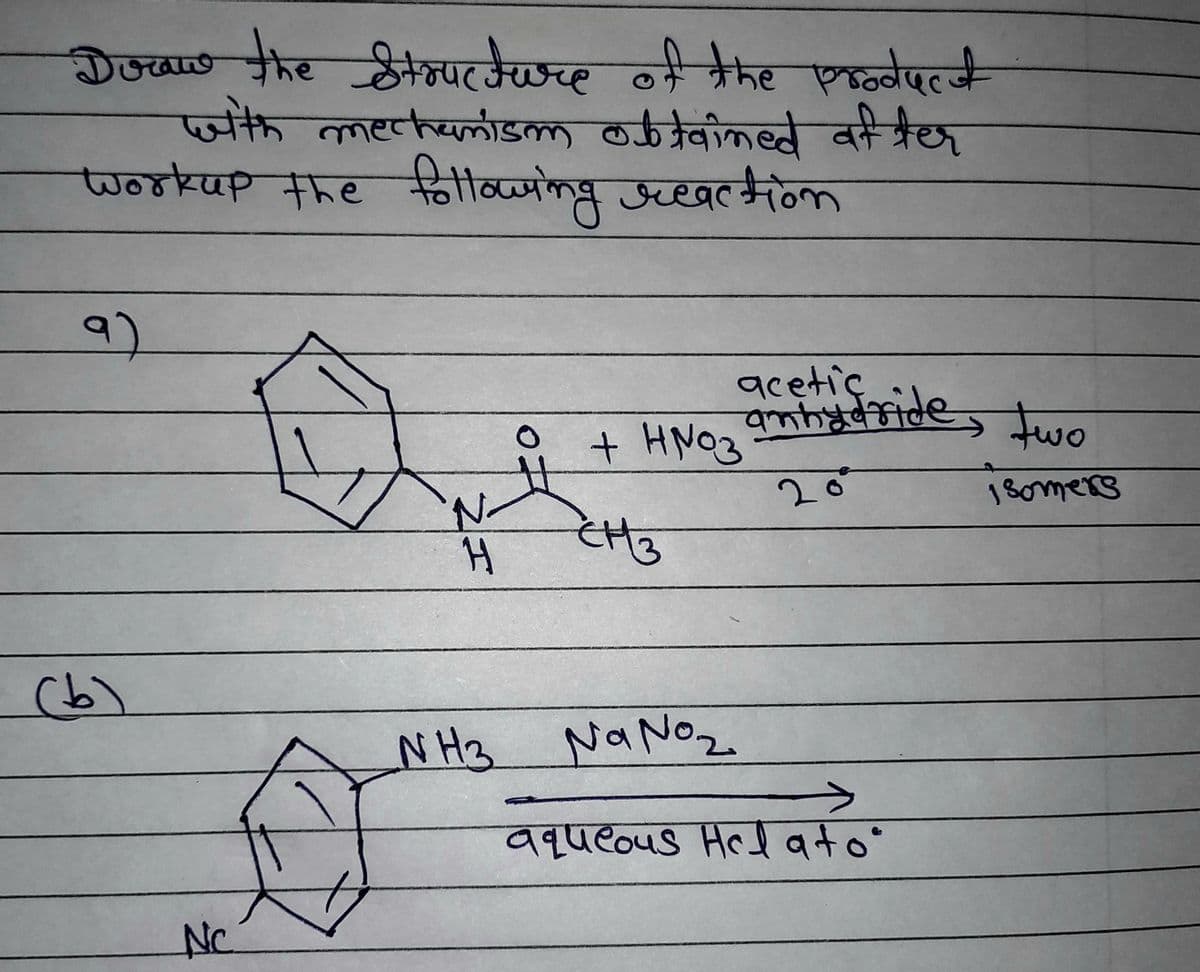 Draw the Structure of the product
with mechanism obtained after
workup the following reaction
a)
acetic
O + HNO3 anhydride, two
20° isomers
N
H CH3
(b)
NH3 NaNO2
aqueous Hcl at 0°
NC